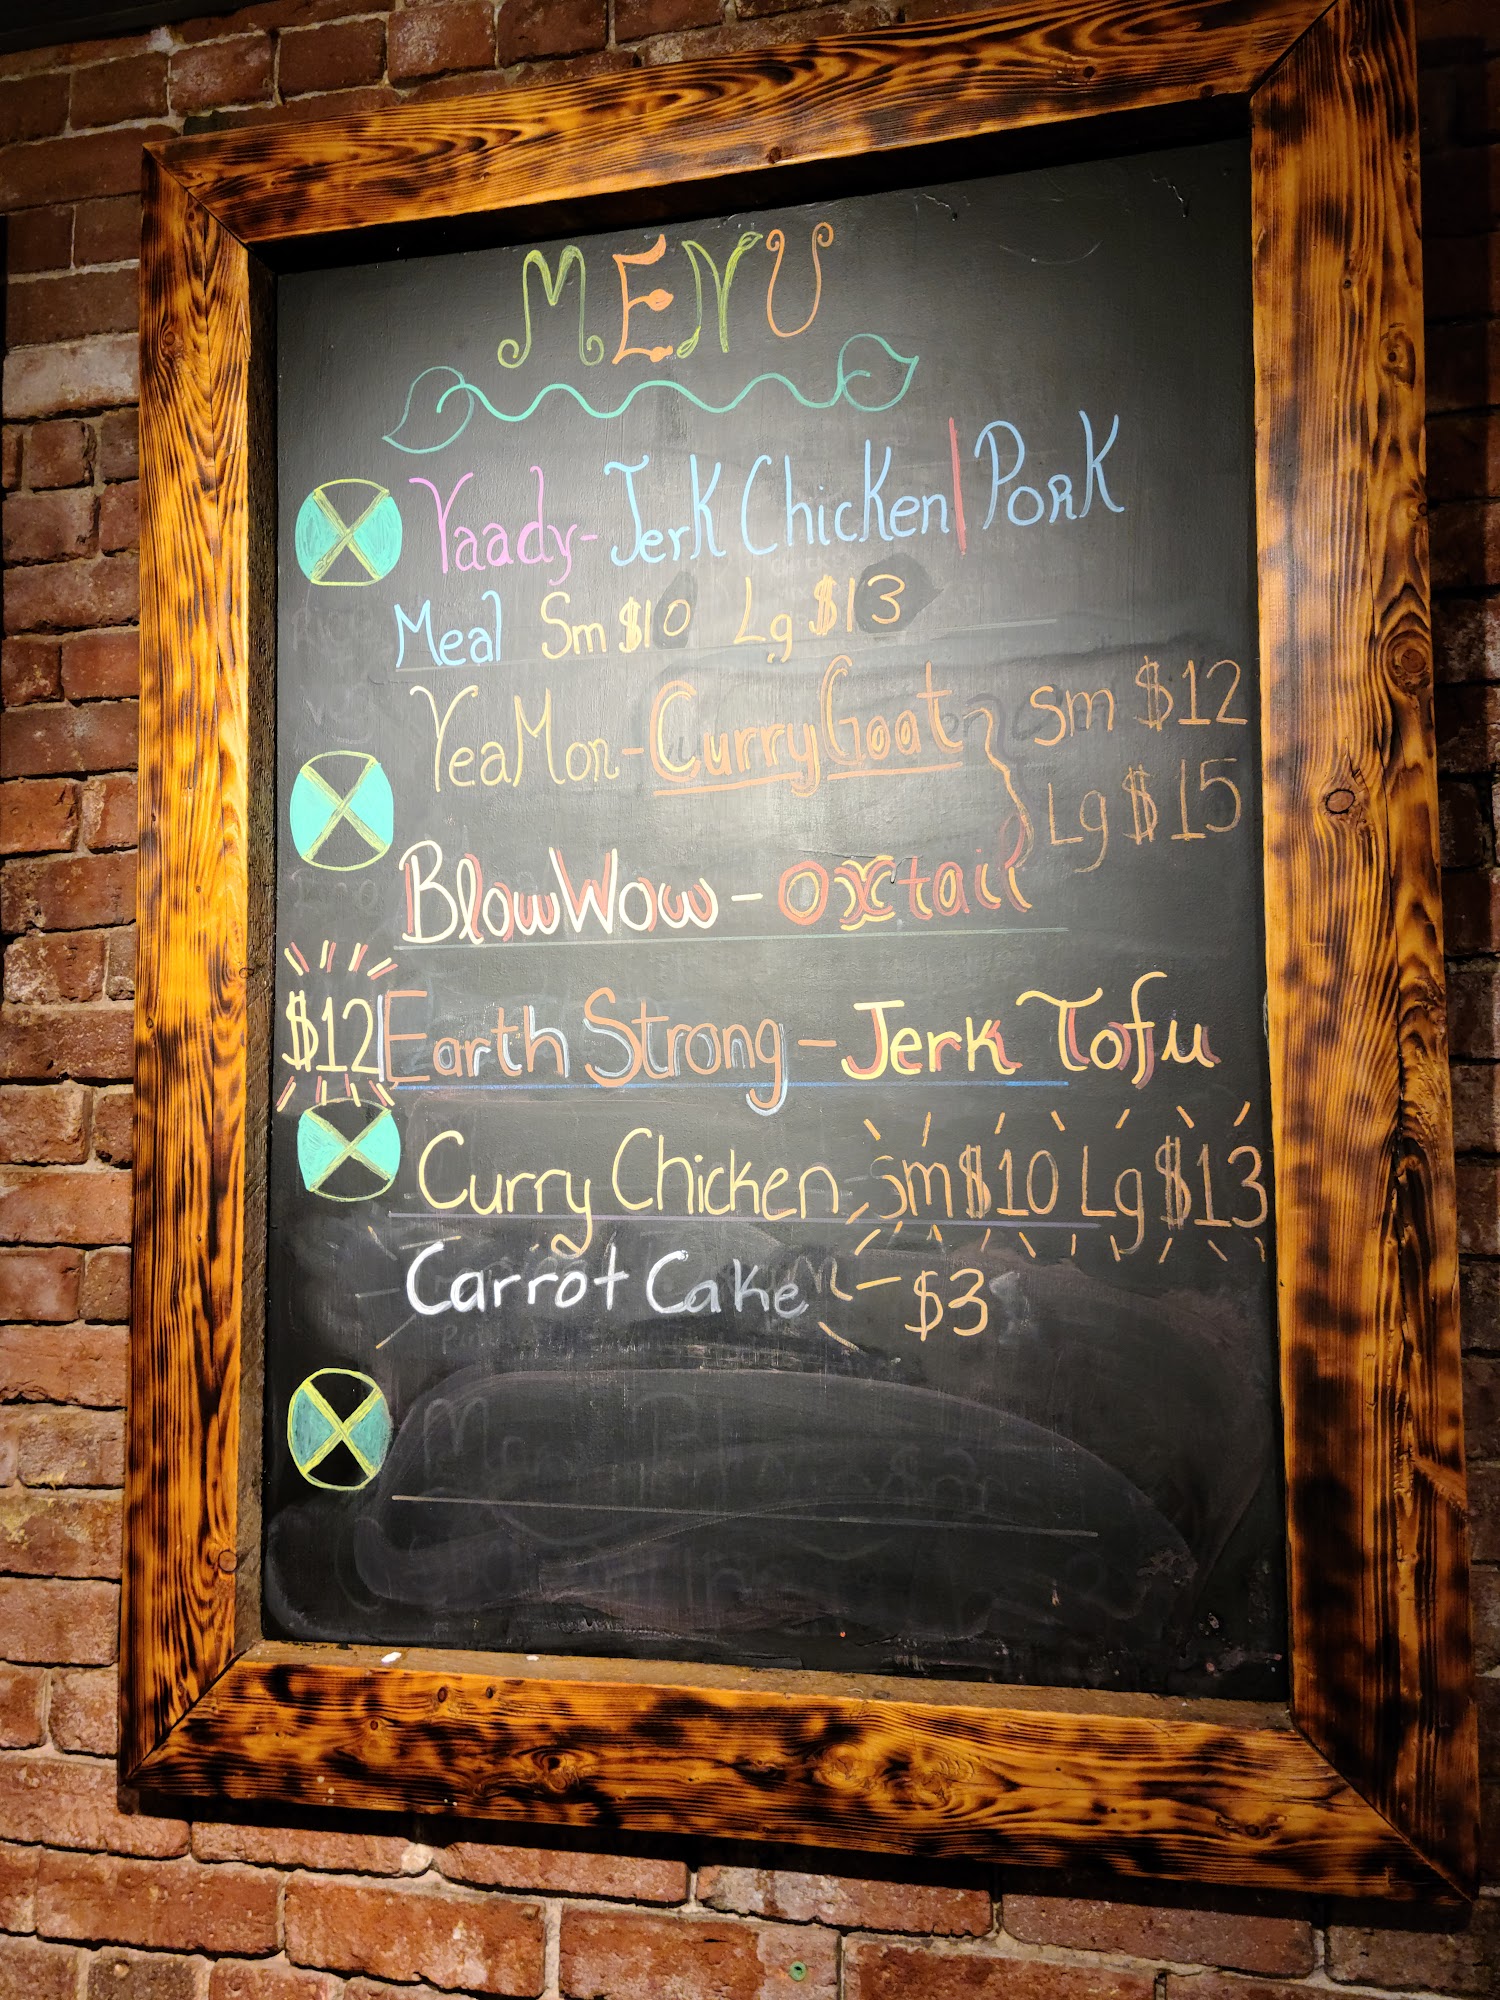 MENU
Yaady-Jerk Chicken|Pork
Meal Sm $10 Lg $13
YeaMon-Curry Goat Sm $12
Lg $15
BlowWow-Oxtail
$12 Earth Strong-Jerk Tofu
Curry Chicken Sm $10 Lg $13
Carrot Cake - $3